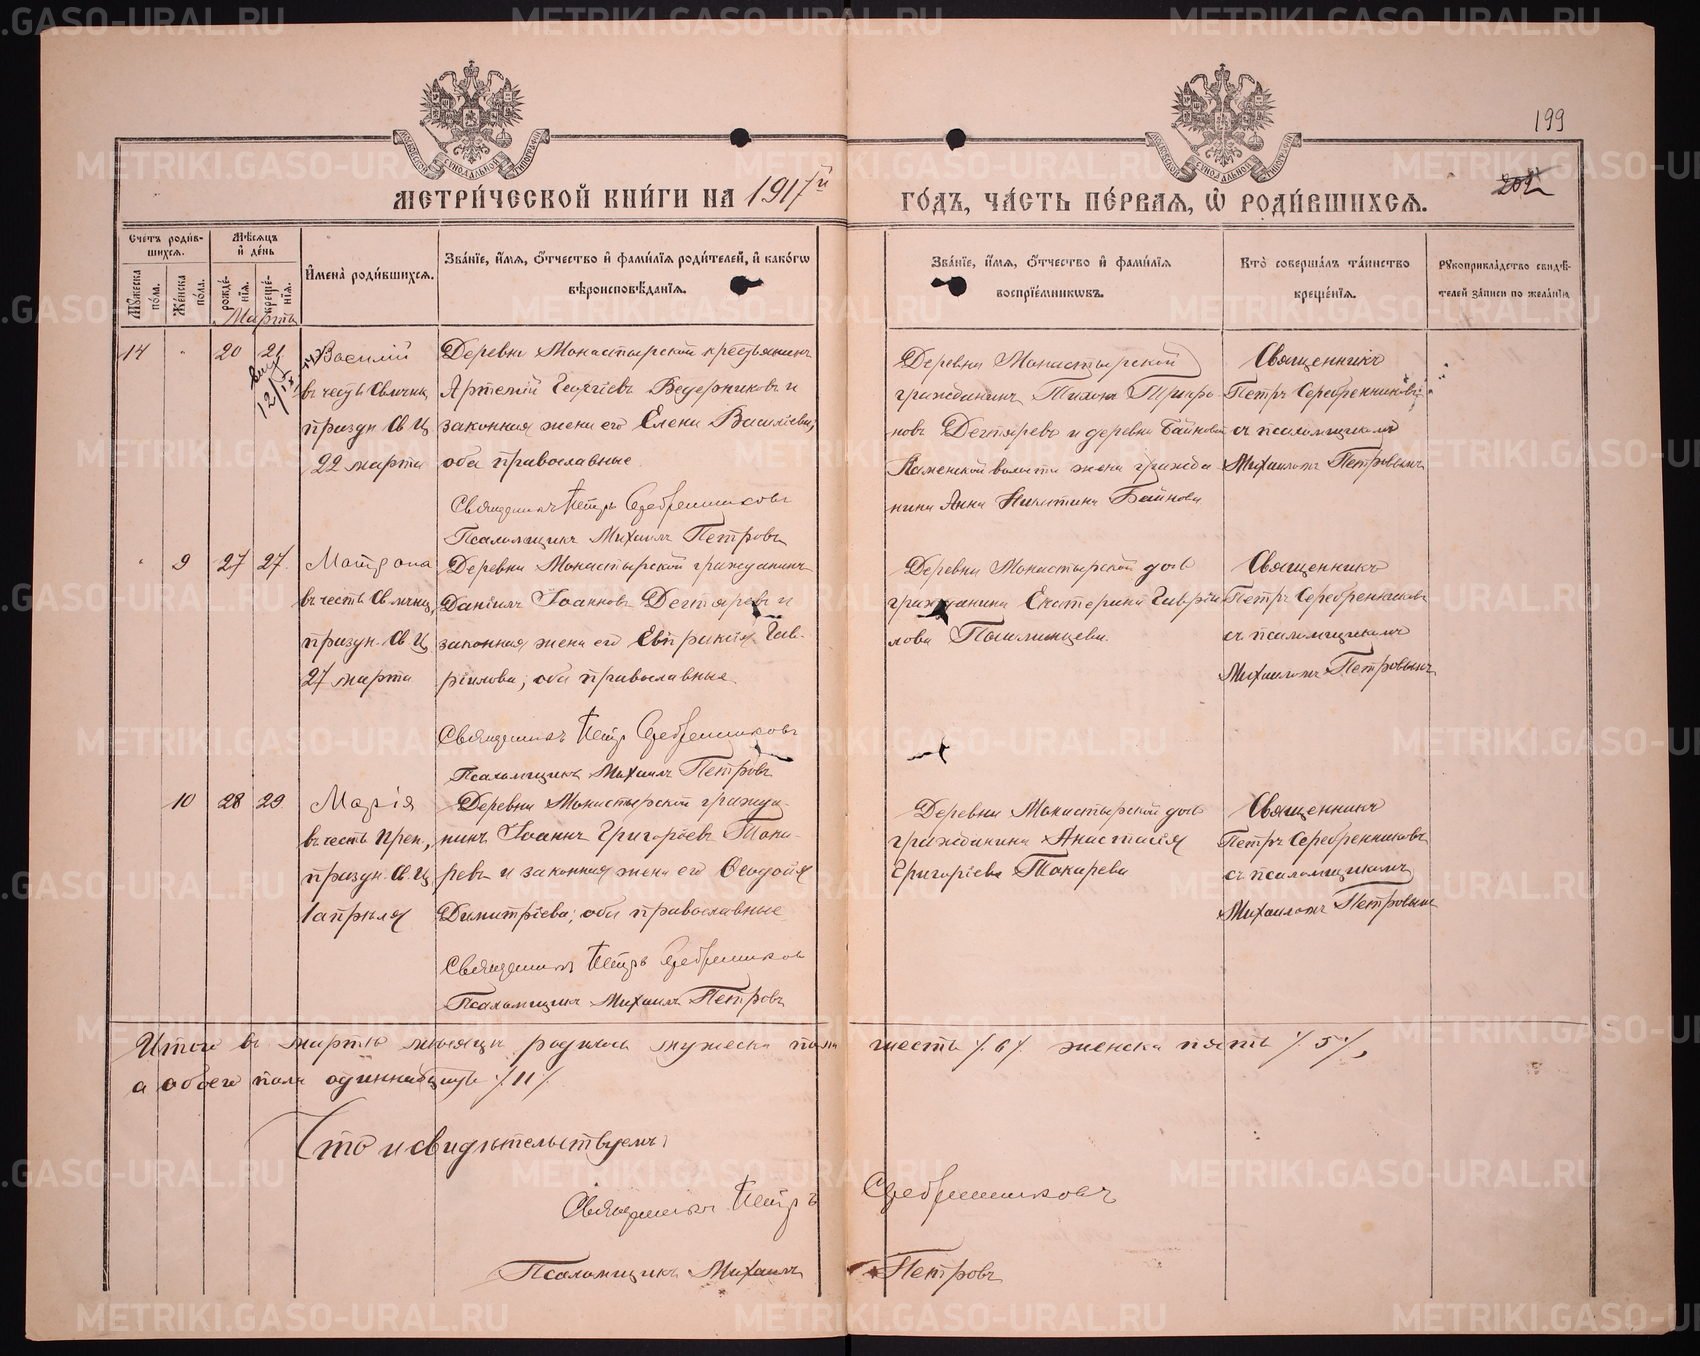 199
202
МЕТРИ́ЧЕСКОЙ КНИ́ГИ НА 1917й ГО́ДЪ, ЧА́СТЬ ПЕ́РВАЯ, Ѡ РОДИ́ВШИХСЯ.
Сче́тъ роди́в-
шихся.
Мꙋ́жеска по́ла.
Же́нска по́ла.
Мѣ́сяцъ
и де́нь
рожде́-
нія.
креще́-
нія.
Имена̀ роди́вшихся.
Зва́ніе, и́мя, ѻ́тчество и фами́лія роди́телей, и како́гѡ
вѣроисповѣ́данія.
Зва́ніе, и́мя, ѻ́тчество и фами́лія
воспріе́мникѡвъ.
Кто̀ соверша́лъ та́инство
креще́нія.
Рꙋкоприкла́дство свидѣ́-
телей за́писи по жела́нію
Мартъ
14 " 20 21 Василій
въ честь Св. мчнц.
праздн. Св. Ц.
22 марта
Деревни Монастырской крестьянинъ
Артемій Георгіевъ Ведерниковъ и
законная жена его Елена Васильева;
оба православные.
Священникъ Петръ Серебренниковъ
Псаломщикъ Михаилъ Петровъ
Деревни Монастырской
гражданинъ Тихонъ Трифо-
новъ Дегтяревъ и деревни Байновой
Каменской волости жена гражда-
нина Анна Никитина Байнова
Священникъ
Петръ Серебренниковъ
съ псаломщикомъ
Михаиломъ Петровымъ
" 9 27 27. Матрона
въ честь Св. мчнц.
праздн. Св. Ц.
27 марта
Деревни Монастырской гражданинъ
Даніилъ Іоанновъ Дегтяревъ и
законная жена его Евпраксія Гав-
ріилова; оба православные.
Священникъ Петръ Серебренниковъ
Псаломщикъ Михаилъ Петровъ
Деревни Монастырской дочь
гражданина Екатерина Гаврiи-
лова Пошлинцева.
Священникъ
Петръ Серебренниковъ
съ псаломщикомъ
Михаиломъ Петровымъ
10 28 29 Марія
въ честь Преп.,
праздн. Св. Ц.
1 апрѣля
Деревни Монастырской гражда-
нинъ Іоаннъ Григорьевъ Тока-
ревъ и законная жена его Ѳеодосія
Димитріева; оба православные
Священникъ Петръ Серебренниковъ
Псаломщикъ Михаилъ Петровъ
Деревни Монастырской дочь
гражданина Анастасія
Григоріева Токарева
Священникъ
Петръ Серебренниковъ
съ псаломщикомъ
Михаиломъ Петровымъ
Итого въ мартѣ мѣсяцѣ родилось мужеска пола шесть /.6/. женска пять /.5/.,
а обоего пола одиннадцать /.11/.
Что и свидѣтельствуемъ:
Священникъ Петръ Серебренниковъ
Псаломщикъ Михаилъ Петровъ
METRIKI.GASO-URAL.RU